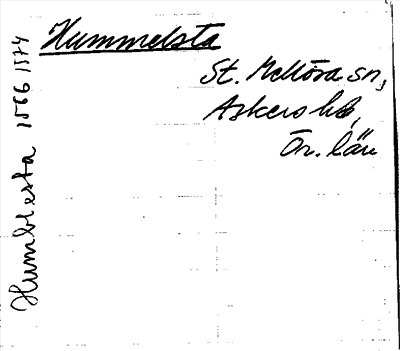 Hummelsta
St. Mellösa sn,
Askers hd,
Ör. län
Humblesta 1566 1574